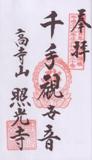 奉拝
千手観世音
高寺山
照光寺